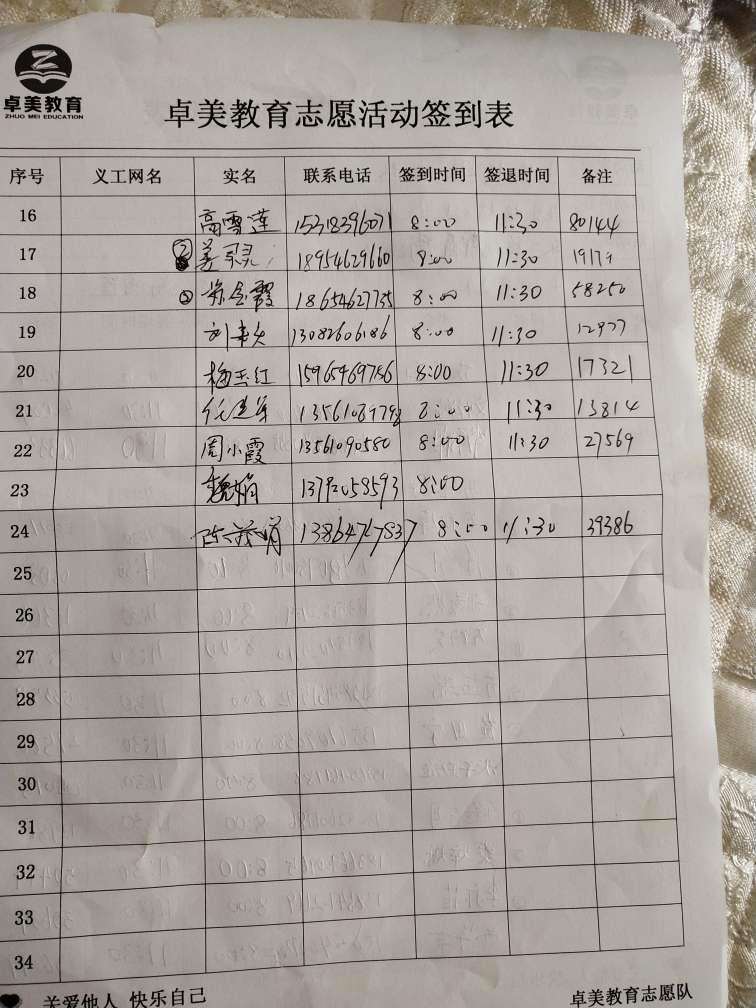 卓美教育
ZHUO MEI EDUCATION
卓美教育志愿活动签到表
序号 义工网名 实名 联系电话 签到时间 签退时间 备注
16 高雪莲 15318396071 8:00 11:30 80144
17 ② 姜 18954629660 8:00 11:30 19179
18 ② 金霞 18654627735 8:00 11:30 58250
19 刘 13082606186 8:00 11:30 12977
20 梅玉红 15965469756 8:00 11:30 17321
21 8:00 11:30 13814
22 周小霞 13561090580 8:00 11:30 27569
23 魏娟 13792058593 8:00
24 8:00 11:30 39386
25
26
27
28
29
30
31
32
33
34
关爱他人 快乐自己
卓美教育志愿队